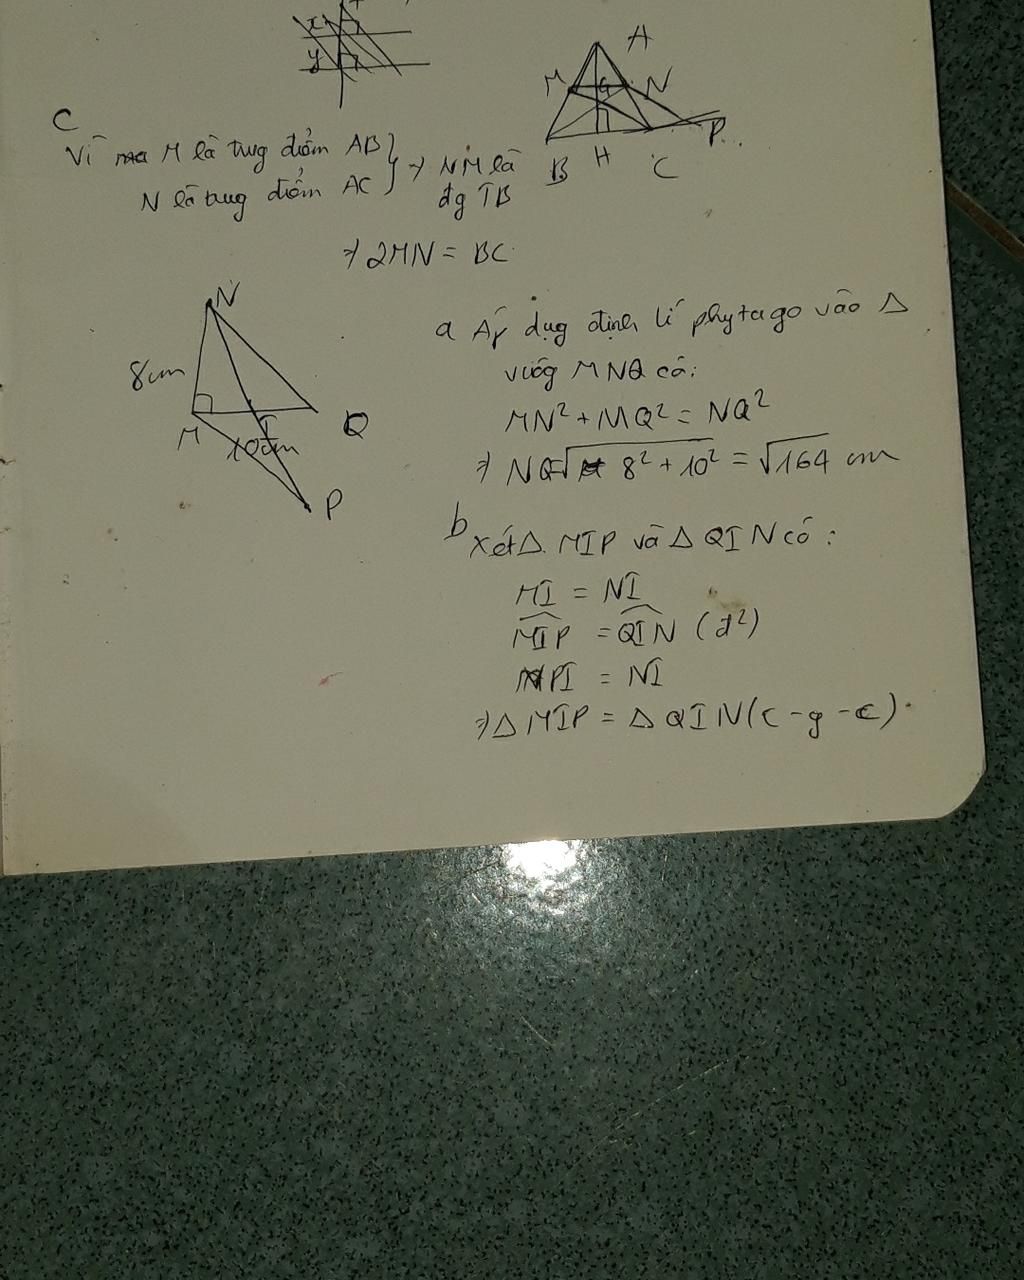 x
y
A
M
G
N
B
H
C
P
C
Vì M là trug điểm AB
N là trug điểm AC
⇒ NM là
đg TB
⇒ 2MN = BC
N
8cm
M
I
Q
10cm
P
a Áp dụg định lí phytago vào Δ
vuôg MNQ có:
MN² + MQ² = NQ²
⇒ NQ=√8² + 10² = √164 cm
b
Xét Δ MIP và Δ QIN có:
MI = NI
MIP = QIN (đ²)
PI = NI
⇒ Δ MIP = Δ QIN (c-g-c).